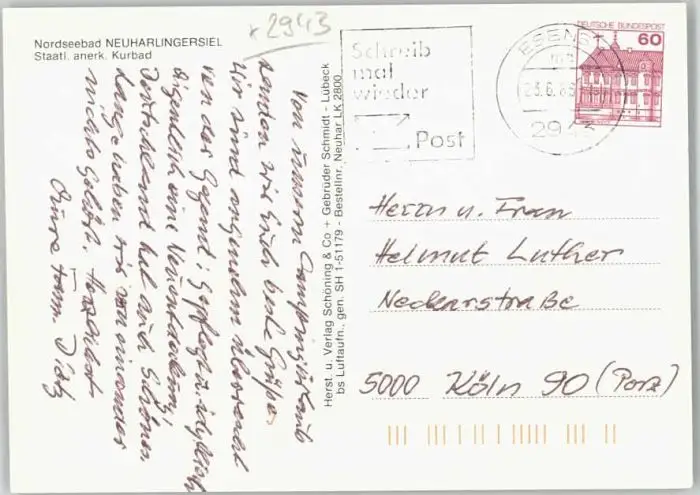 Nordseebad NEUHARLINGERSIEL
Staatl. anerk. Kurbad
2943
Schreib
mal
wieder
Post
ESENS
2943
DEUTSCHE BUNDESPOST
60
Von unserem Campingurlaub
senden wir Euch beste Grüße.
Wir sind angenehm überrascht
von der Gegend: Gepflegt u. idyllisch
eigentlich eine Neuentdeckung,
Deutschland hat auch Schönes.
Lange haben wir von einander
nichts gehört. Herzlichst
Eure Fam. Dietz
Herst. u. Verlag Schöning & Co + Gebrüder Schmidt - Lübeck
bs Luftaufn., gen. SH 1-51179 - Bestellnr. Neuhar LK 2800
Herrn u. Frau
Helmut Luther
Neckarstraße
5000 Köln 90 (Porz)